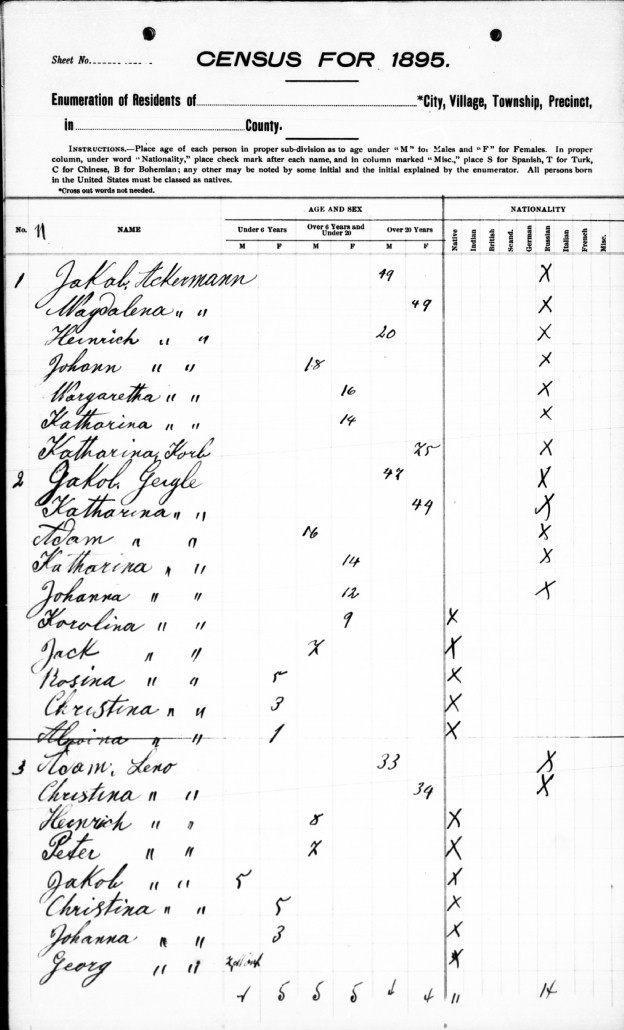 Sheet No.
CENSUS FOR 1895.
Enumeration of Residents of *City, Village, Township, Precinct,
in County.
INSTRUCTIONS.—Place age of each person in proper sub-division as to age under "M" for Males and "F" for Females. In proper
column, under word "Nationality," place check mark after each name, and in column marked "Misc.," place S for Spanish, T for Turk,
C for Chinese, B for Bohemian; any other may be noted by some initial and the initial explained by the enumerator. All persons born
in the United States must be classed as natives.
*Cross out words not needed.
AGE AND SEX NATIONALITY
No. 11 NAME Under 6 Years Over 6 Years and Under 20 Over 20 Years
M F M F M F Native Indian British Scand. German Russian Italian French Misc.
1 Jakob, Ackermann 49 X
Magdalena " " 49 X
Heinrich " " 20 X
Johann " " 18 X
Margaretha " " 16 X
Katharina " " 14 X
Katharina, Korb 25 X
2 Jakob, Geigle 47 X
Katharina " " 44 X
Adam " " 16 X
Katharina " " 14 X
Johanna " " 12 X
Karolina " " 9 X
Jack " " 7 X
Rosina " " 5 X
Christina " " 3 X
" " 1 X
3 Adam, Leno 33 X
Christina " " 34 X
Heinrich " " 8 X
Peter " " 7 X
Jakob " " 5 X
Christina " " 5 X
Johanna " " 3 X
Georg " " X
5 5 5 4 4 11 14